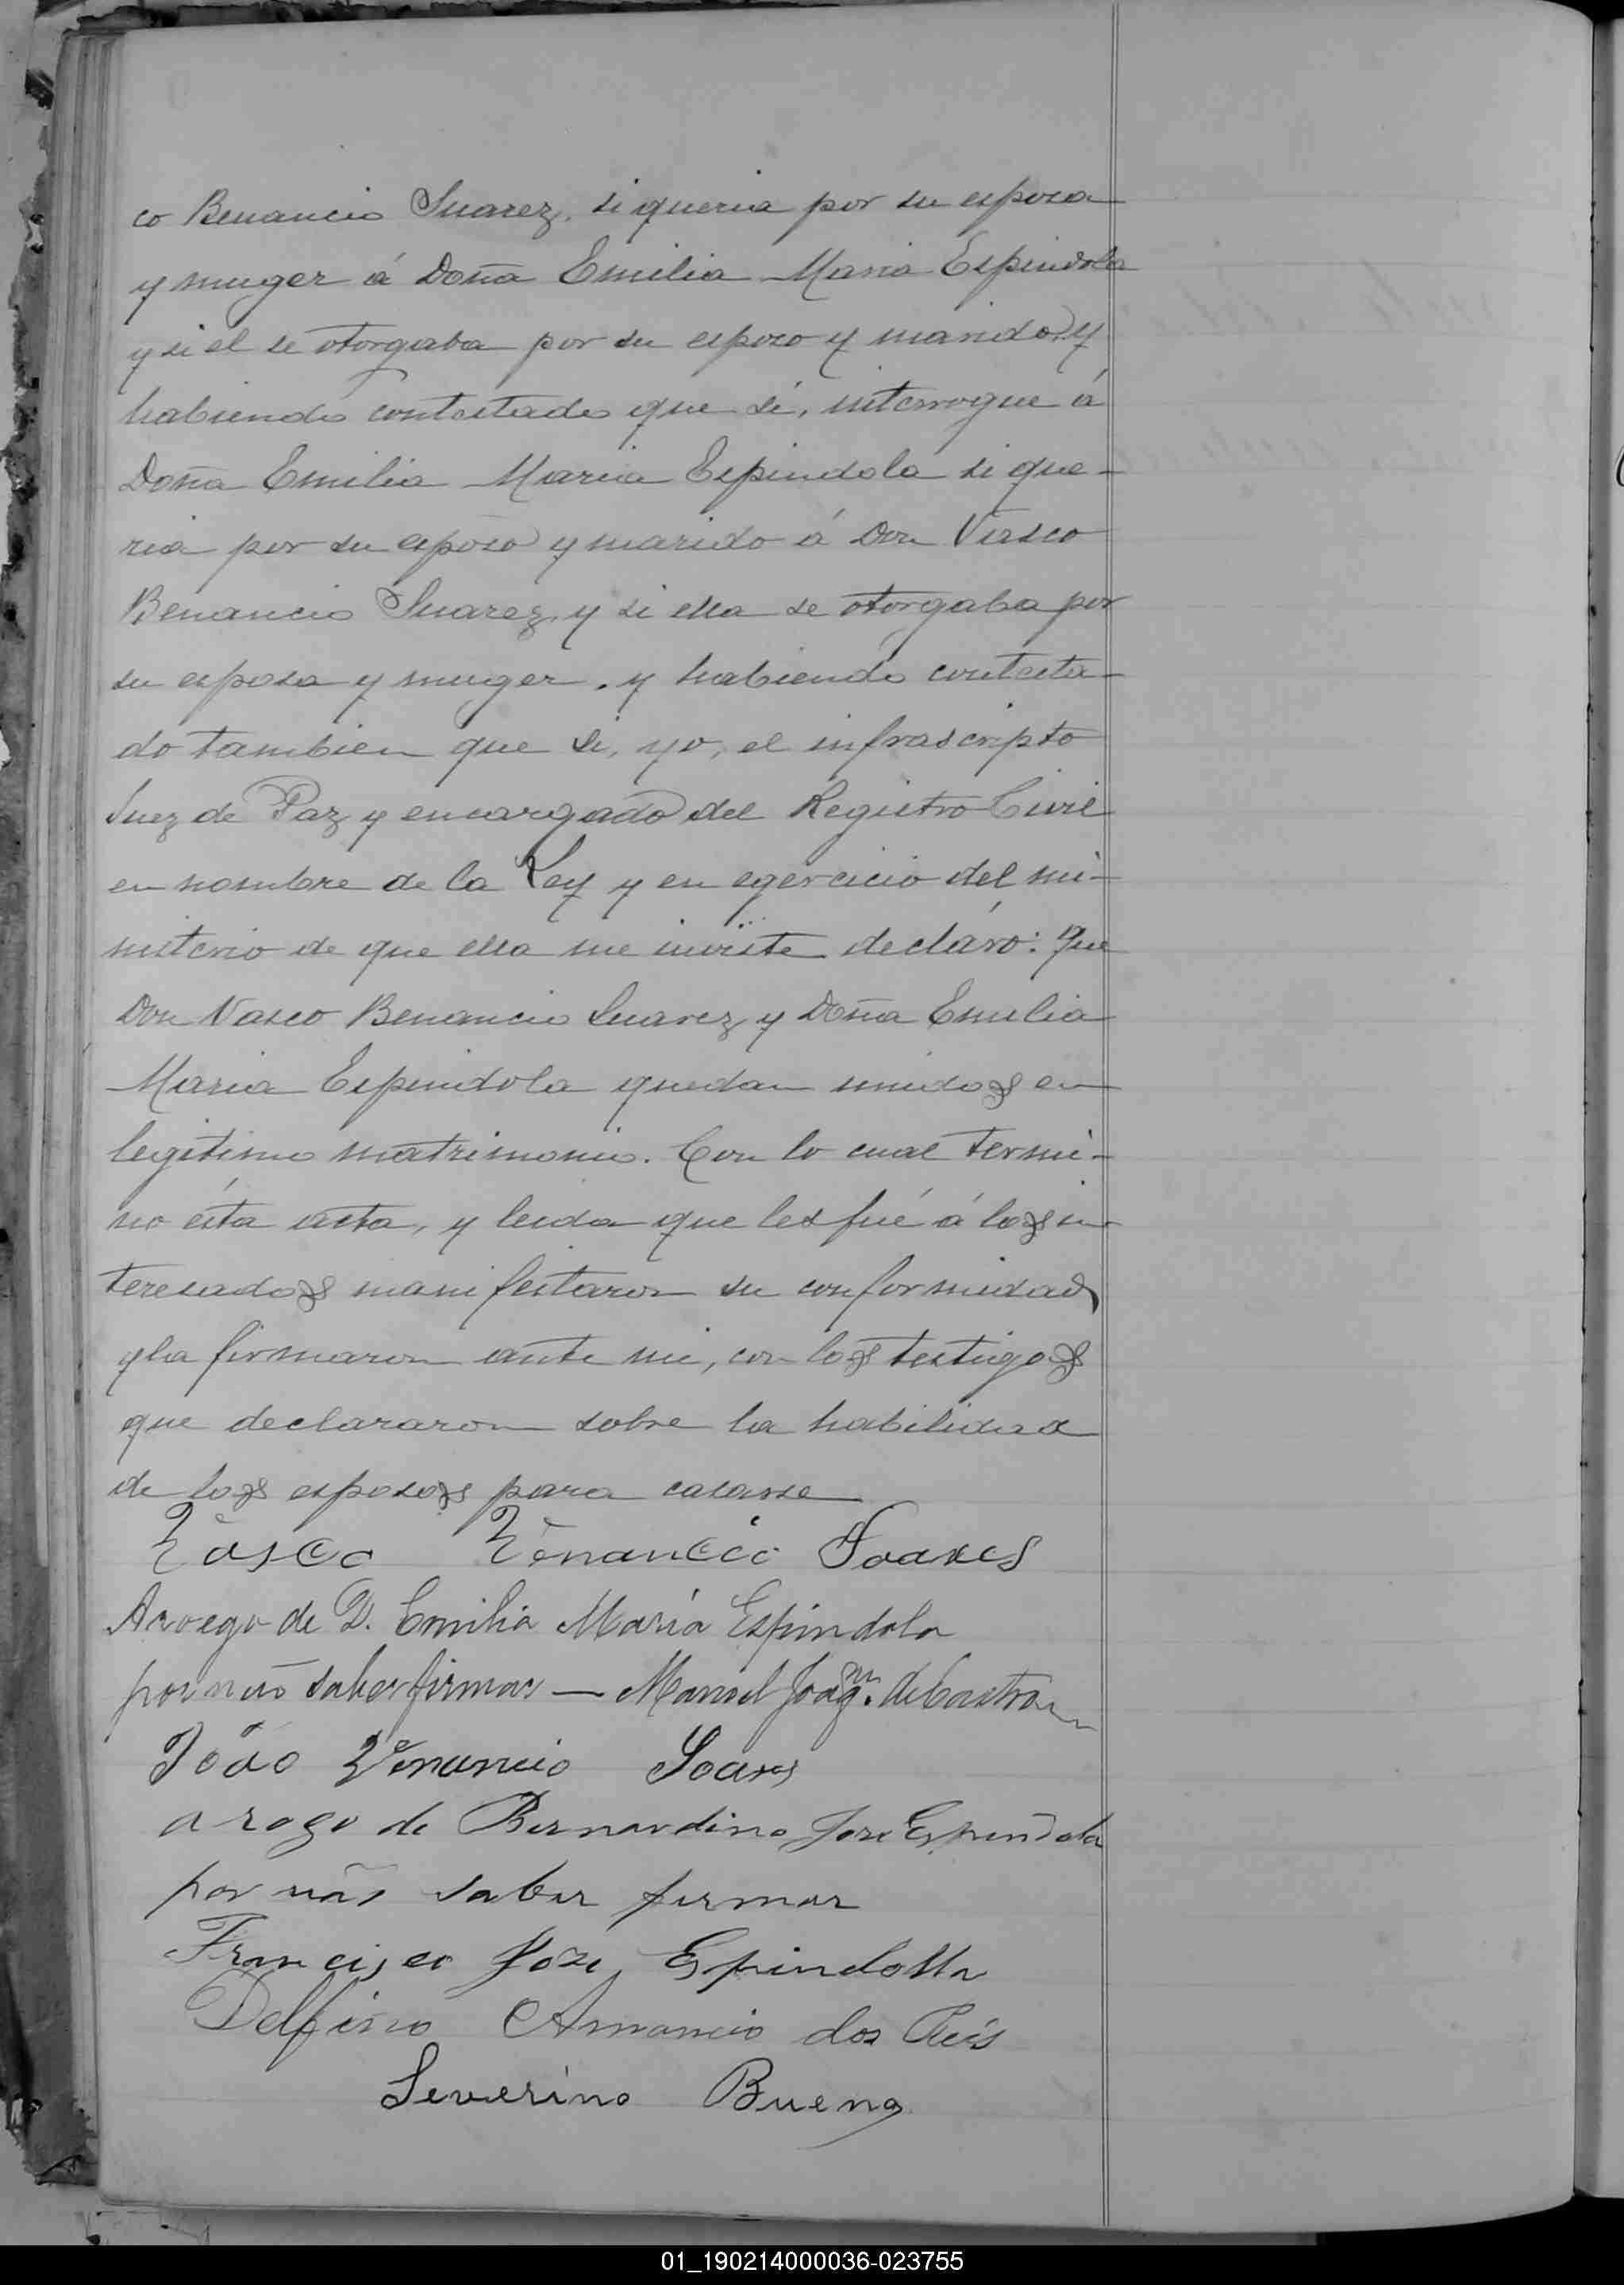 co Benancio Suarez, si queria por su esposa
y muger á Doña Emilia Maria Espindola
y si el se otorgaba por su esposo y marido, y
habiendo contestado que sí, interrogue á
Doña Emilia Maria Espindola si que-
ria por su esposo y marido á Don Vasco
Benancio Suarez, y si ella se otorgaba por
su esposa y muger, y habiendo contesta-
do tambien que si, yo, el infrascripto
Juez de Paz y encargado del Registro Civil
en nombre de la Ley y en egercicio del mi-
nisterio de que ella me inviste declaro: Que
Don Vasco Benancio Suarez y Doña Emilia
Maria Espindola quedan unidos en
legitimo matrimonio. Con lo cual termi-
no ésta acta, y leida que les fué á los in
teresados manifestaron su conformidad
y la firmaron ante mi, con los testigos
que declararon sobre la habilidad
de los esposos para casarse
Vasco Venancio Soares
Arroego de D. Emilia María Espindola
por não saber firmar — Manoel Joaqm. de Castro
João Venancio Soares
a rogo de Bernardino Jose Espindola
por não saber firmar
Francisco Joze Espindolla
Delfino Amancio dos Reis
Severino Bueno
01_190214000036-023755